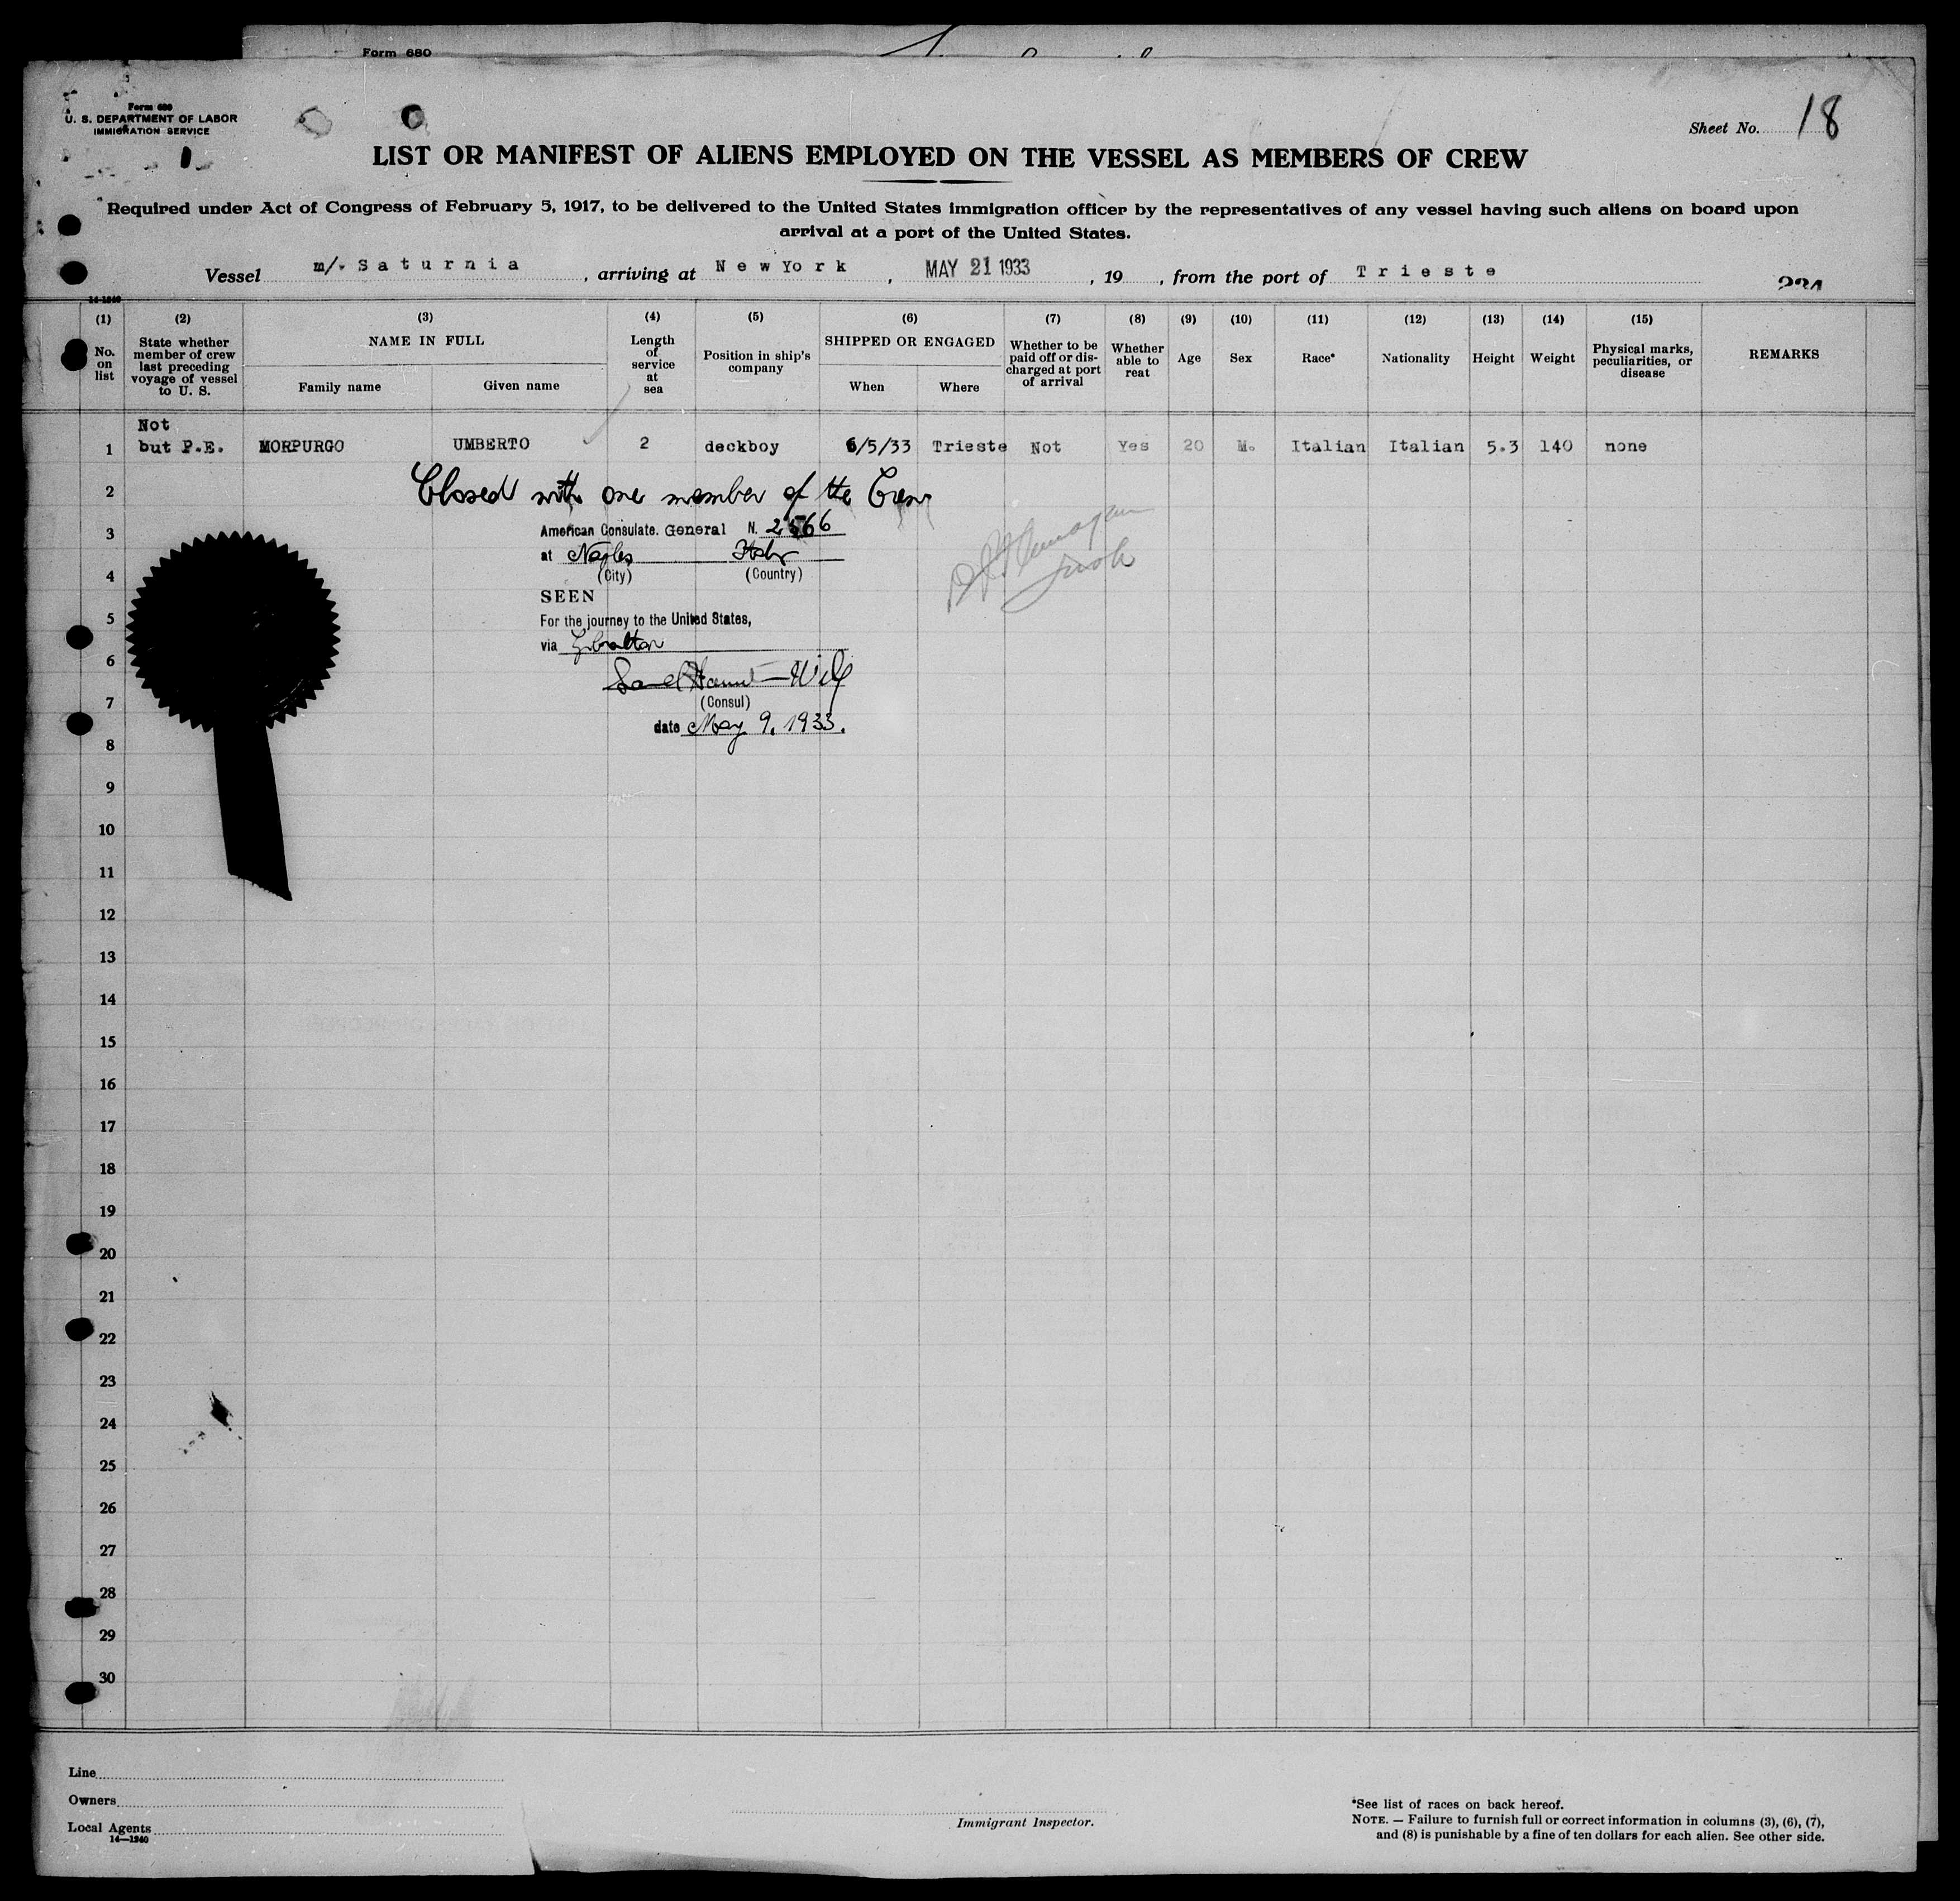 Form 680
Form 680
U. S. DEPARTMENT OF LABOR
IMMIGRATION SERVICE
Sheet No. 18
LIST OR MANIFEST OF ALIENS EMPLOYED ON THE VESSEL AS MEMBERS OF CREW
Required under Act of Congress of February 5, 1917, to be delivered to the United States immigration officer by the representatives of any vessel having such aliens on board upon
arrival at a port of the United States.
Vessel m/. Saturnia, arriving at New York, MAY 21 1933, 19, from the port of Trieste
14-1240
(1) (2) (3) (4) (5) (6) (7) (8) (9) (10) (11) (12) (13) (14) (15)
No. on list
State whether member of crew last preceding voyage of vessel to U. S.
NAME IN FULL
Family name Given name
Length of service at sea
Position in ship's company
SHIPPED OR ENGAGED
When Where
Whether to be paid off or discharged at port of arrival
Whether able to reat
Age Sex Race* Nationality Height Weight
Physical marks, peculiarities, or disease
REMARKS
Not
1 but P.E. MORPURGO UMBERTO 2 deckboy 6/5/33 Trieste Not Yes 20 M. Italian Italian 5.3 140 none
2 Closed with one member of the Crew
3 American Consulate. General N. 2566
at Naples Italy
4 (City) (Country)
SEEN
5 For the journey to the United States,
6 via Gibraltar
7 (Consul)
date May 9, 1933.
8
9
10
11
12
13
14
15
16
17
18
19
20
21
22
23
24
25
26
27
28
29
30
Line
Owners
Local Agents
14—1240
Immigrant Inspector.
*See list of races on back hereof.
NOTE. — Failure to furnish full or correct information in columns (3), (6), (7),
and (8) is punishable by a fine of ten dollars for each alien. See other side.